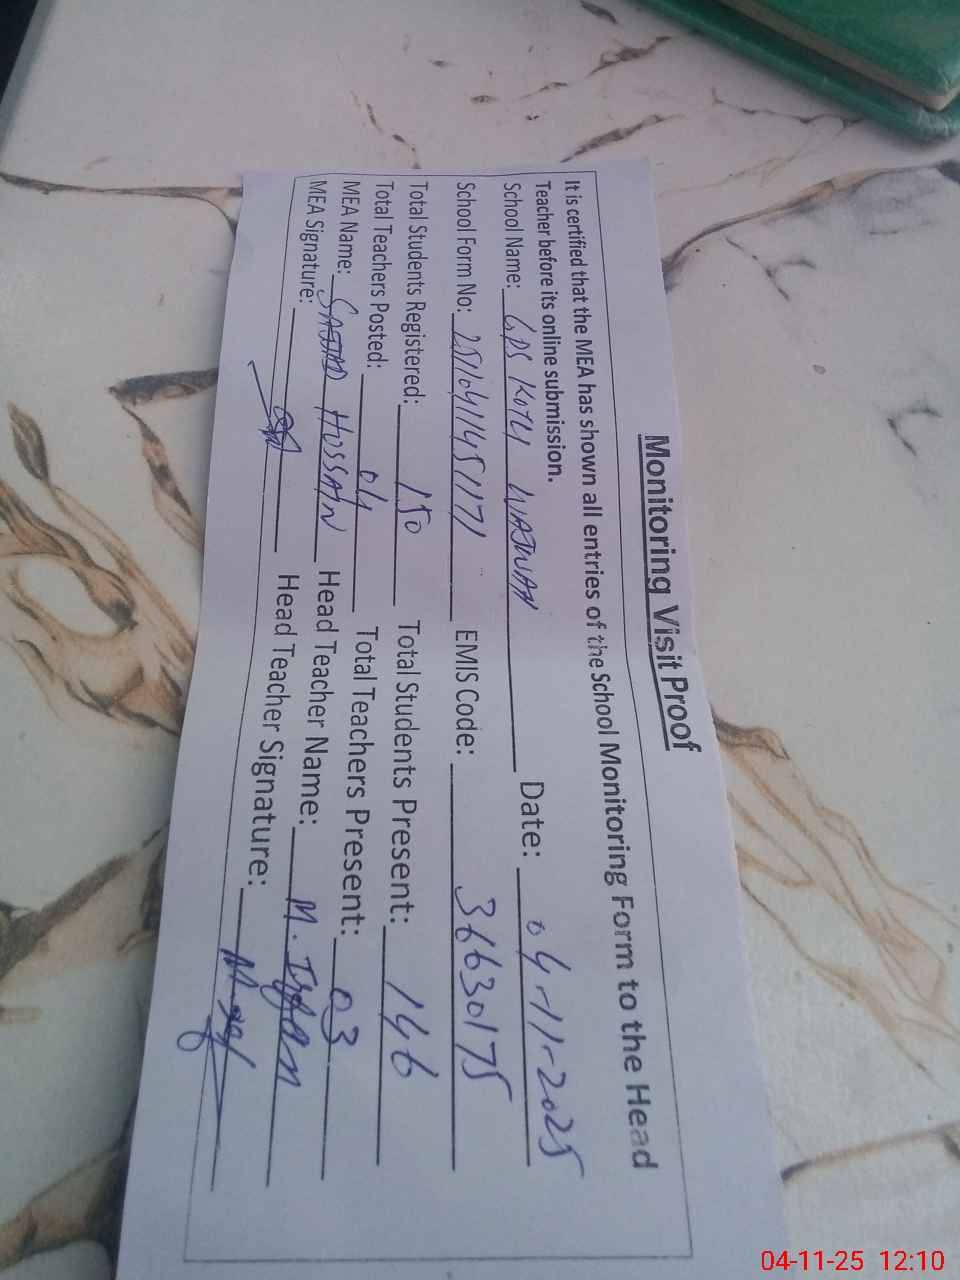 Monitoring Visit Proof
It is certified that the MEA has shown all entries of the School Monitoring Form to the Head
Teacher before its online submission.
School Name: GPS KOTLI WAJWAN Date: 04-11-2025
School Form No: EMIS Code: 36630175
Total Students Registered: 150 Total Students Present: 146
Total Teachers Posted: 04 Total Teachers Present: 03
MEA Name: SAJJAD HUSSAIN Head Teacher Name: M. Irfan
MEA Signature: Head Teacher Signature:
04-11-25 12:10